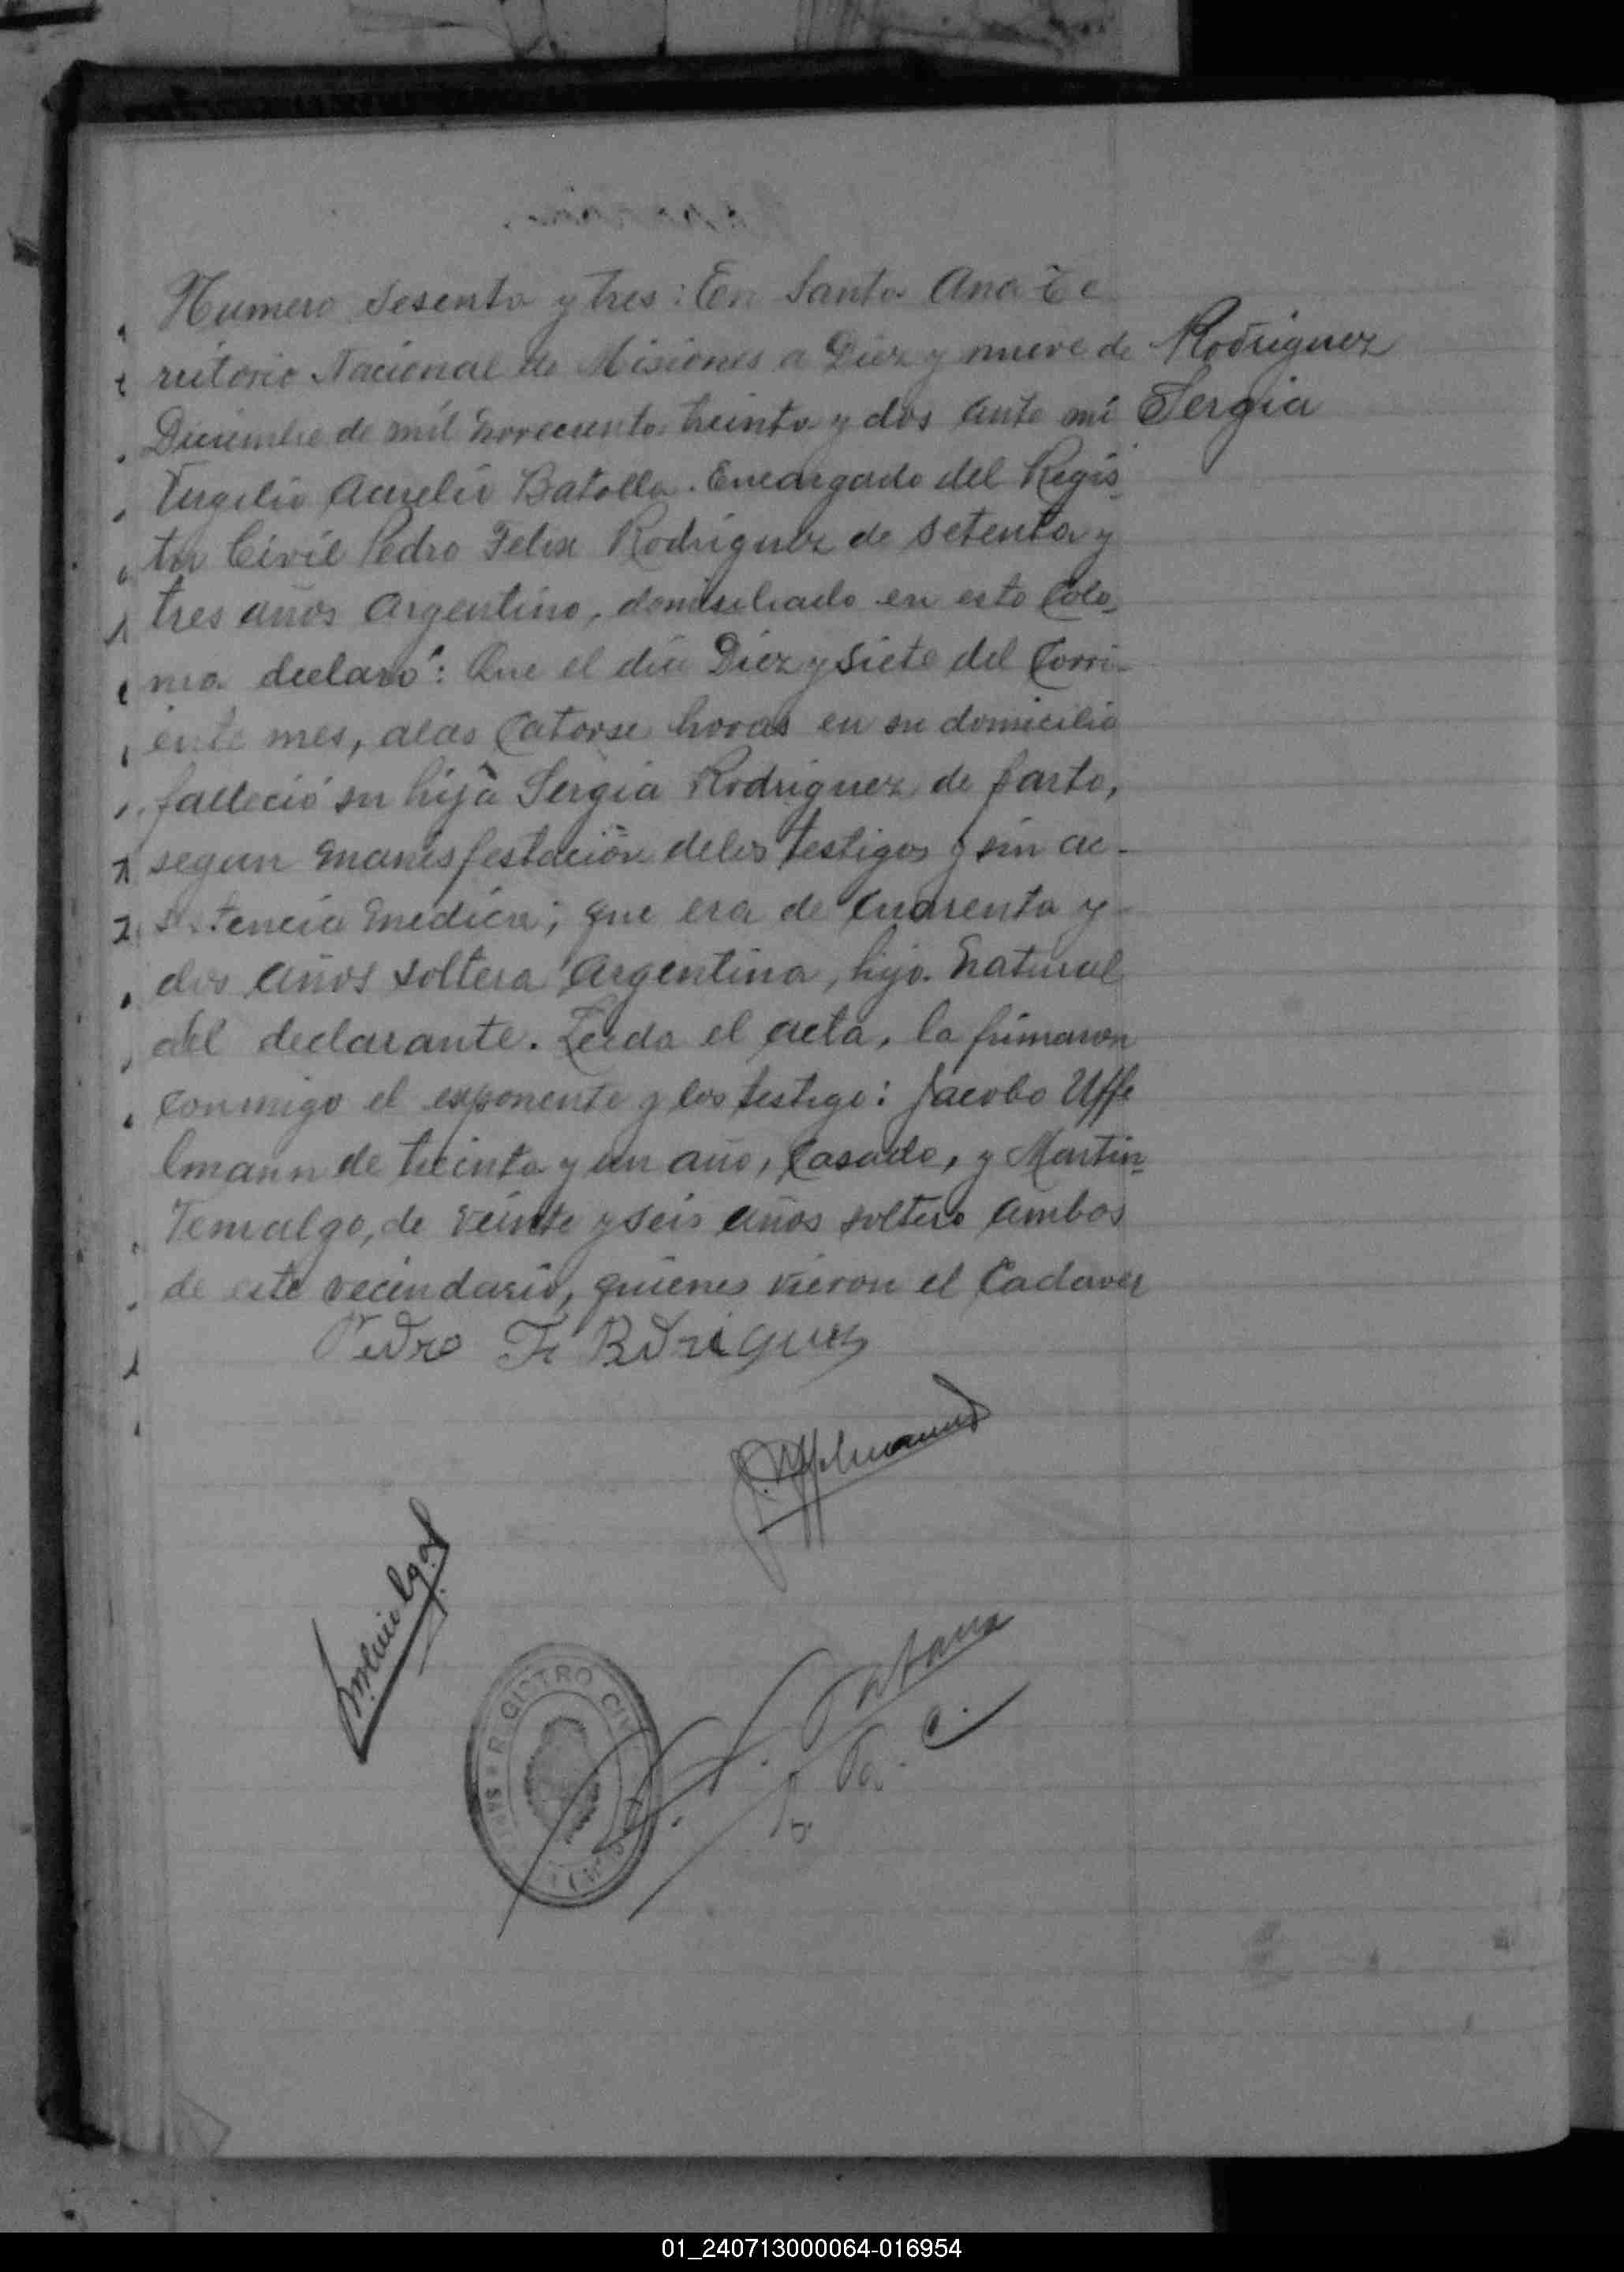 Numero Sesenta y tres: En Santa Ana Te
rritorio Nacional de Misiones a Diez y nueve de
Rodriguez
Diciembre de mil novecientos treinta y dos ante mi
Sergia
Aurelio Batalla. Encargado del Regis
tro Civil Pedro Felix Rodriguez de setenta y
tres años Argentino, domiciliado en esta Colo
nia declaró: Que el dia Diez y siete del Corri-
ente mes, alas Catorse horas en su domicilio
falleció su hija Sergia Rodriguez de parto,
segun manisfestación delos testigos y sin as-
sistencia medica; que era de Cuarenta y
dos años soltera Argentina, hija natural
del declarante. Leida el acta, la firmaron
conmigo el exponente y los testigo: Jacobo Uffe
lmann de treinta y un año, Casado, y Martin
de veinte y seis años soltero ambos
de este vecindario, quienes vieron el Cadaver
Pedro F Rdriguez
J. Uffelmann
REGISTRO CIVIL
01_240713000064-016954